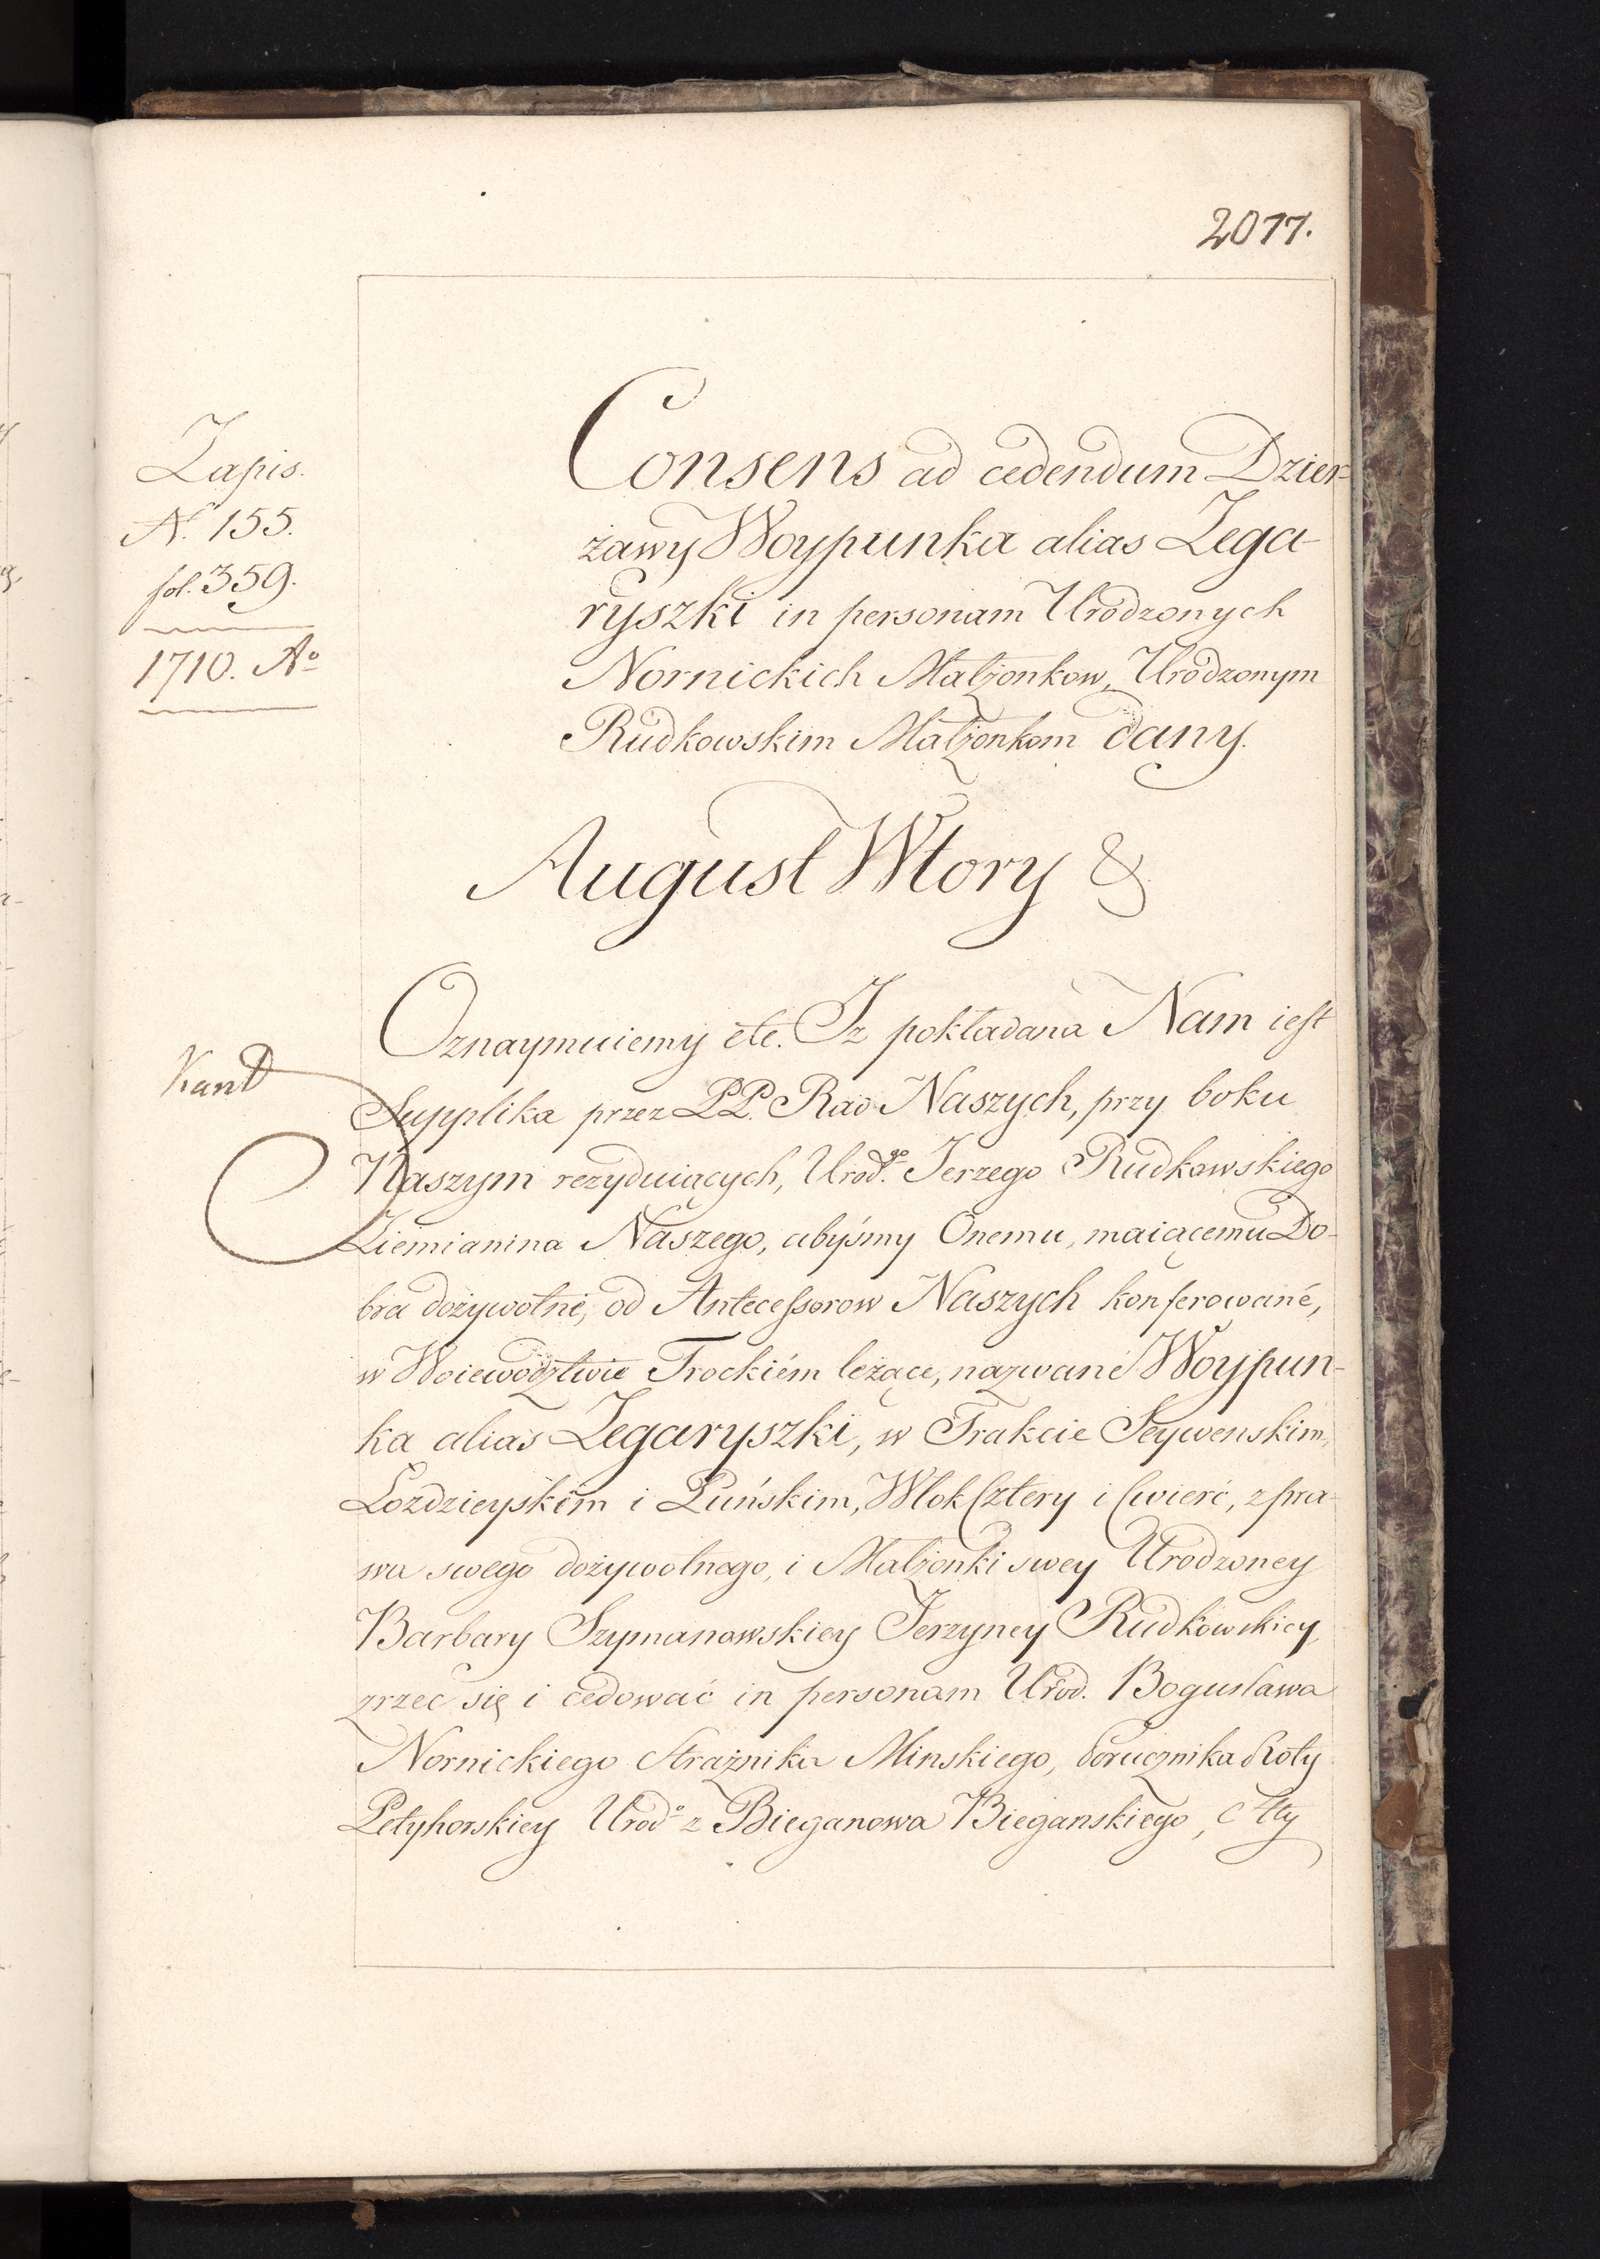 2077.
Zapis.
N. 155.
fol. 359.
1710. Aº
Consens ad cedendum Dzier-
żawy Woypunka alias Zega-
ryszki in personam Urodzonych
Nornickich Małżonkow, Urodzonym
Rudkowskim Małżonkom dany.
August Wtory &
Oznaymuiemy etc. Iż pokładana Nam iest
Supplika przez PP. Rad Naszych, przy boku
Naszym rezyduiących, Urodgo. Jerzego Rudkowskiego
Ziemianina Naszego, abyśmy Onemu, maiącemu Do-
bra dożywotnié, od Antecessorow Naszych konferowané,
w Woiewodztwie Trockiém leżące, nazwané Woypun-
ka alias Zegaryszki, w Trakcie Seywenskim,
Łoździeyskim i Puńskim, Włok Cztery i Cwierć, z pra-
wa swego dożywotnego, i Małżonki swey Urodzoney
Barbary Szymanowskiey Jerzyney Rudkowskiey,
zrzec się i cedować in personam Urod. Bogusława
Nornickiego Strażnika Minskiego, Porucznika Roty
Petyhorskiey Urodº z Bieganowa Bieganskiego,